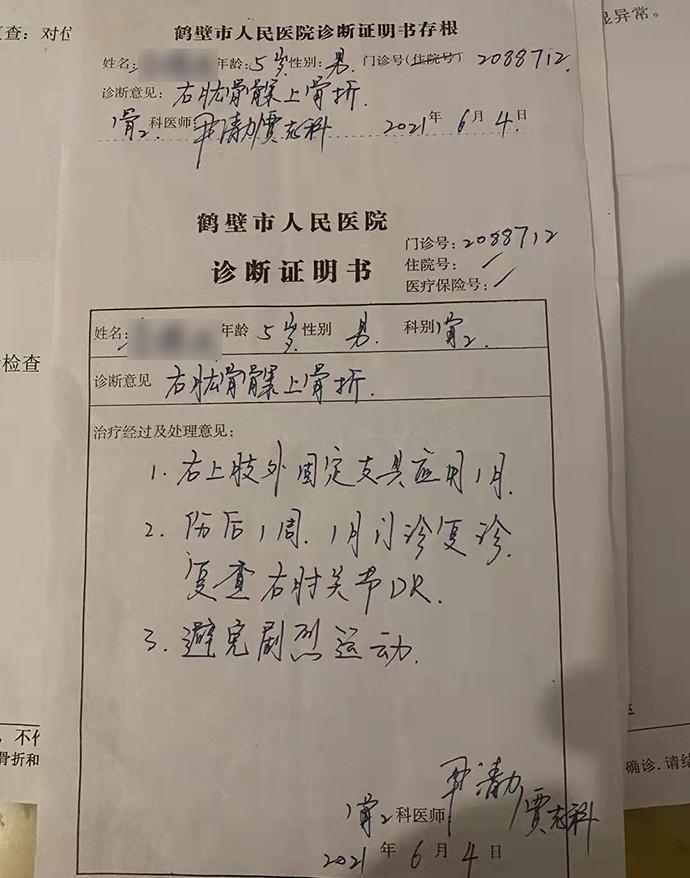 复查：对位
显异常。
鹤壁市人民医院诊断证明书存根
姓名: 年龄: 5岁 性别: 男. 门诊号(住院号) 2088712.
诊断意见: 右肱骨髁上骨折.
骨2. 科医师 2021年 6月 4日
鹤壁市人民医院
诊断证明书
门诊号: 2088712
住院号: ✓
医疗保险号: ✓
姓名: 年龄 5岁 性别 男. 科别 骨2.
诊断意见 右肱骨髁上骨折.
治疗经过及处理意见:
1. 右上肢外固定支具应用1月.
2. 伤后1周. 1月门诊复诊.
复查右肘关节DR.
3. 避免剧烈运动.
检查
骨折和
确诊.请结
骨2 科医师:
2021年 6月 4日